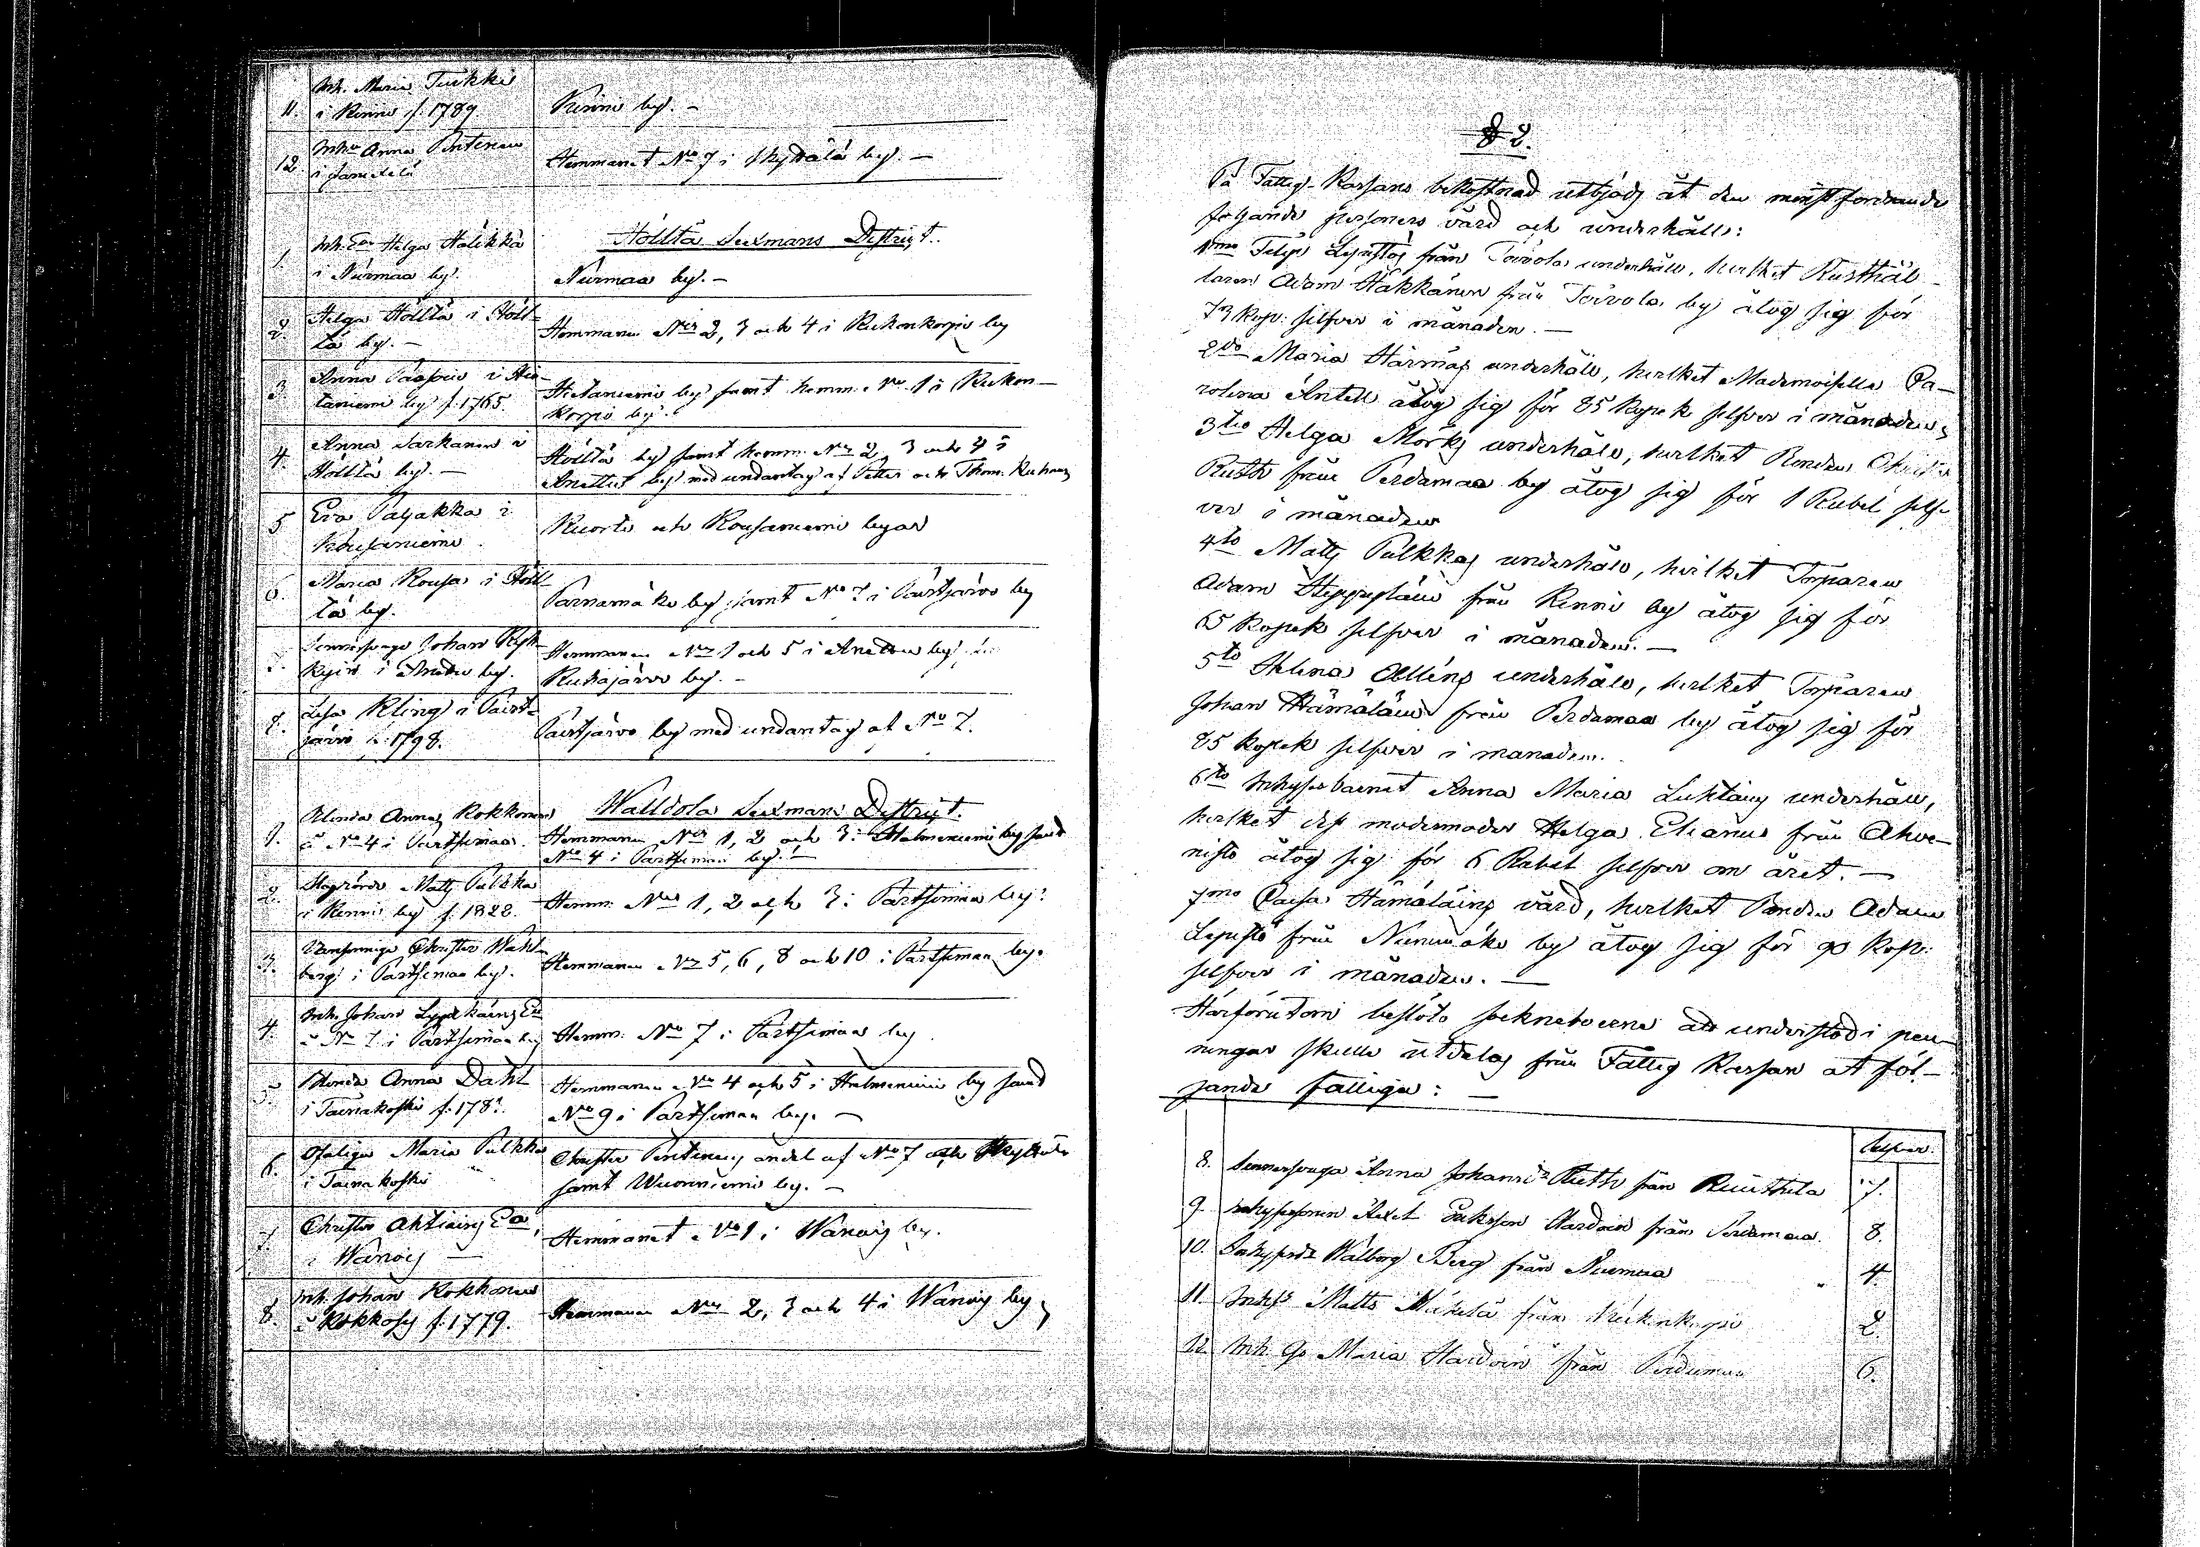 11. Inh. Maria Tuikka
i Kinni f. 1789. Kinni by. –
12. Inh. Anna Pöntinen
i Hemmanet No 7 i by. –
Hölltä Sexmans District.
1. Inh. Helga Halikka
i Nurmaa by. Nurmaa by. –
2. Helga Hölttä i Höll-
tä by. – Hemmanen Nris 2, 3 och 4 i Kukonkorpi by
3. Anna Paasoin i Hie-
taniemi by f. 1765. Hietaniemi by samt hemm. No 1 i Kukon-
korpi by.
4. Anna Sarkanen i
Hölltä by. – Hölltä by samt hemm. Nris 2, 3 och 4 i
Anettu by med undantag af Petter och Thom.
5. Eva Paljakka i
Kousaniemi. Kuorti och Kousaniemi byar
6. Maria Kousa i Höll-
tä by. Parnamäki by samt No 7 i Päistjärvi by
7. Johan
i by. Hemmanen Nris 1 och 5 i Anettu by
Ruhajärvi by. –
8. Lisa Kling i Päist-
järvi f. 1798. Päistjärvi by med undantag af No 7.
Walldola Sexmans District.
1. Blinda Anna Kokkonen
å No 4 i Partsimaa. Hemmanen Nris 1, 2 och 3 i Halmeniemi by samt
No 4 i Partsimaa by. –
2. Matts Pulkka
i Kinni by f. 1828. Hemm. Nris 1, 2 och 3 i Partsimaa by.
3. Vanföriga Christer Wahl-
berg i Partsimaa by. Hemmanen Nris 5, 6, 8 och 10 i Partsimaa by.
4. Inh. Johan Lyytikäinens Ea
å No 7 i Partsimaa by Hemm. No 7 i Partsimaa by
5. Blinda Anna Dahl
i Tainakoski Hemmanen Nris 4 och 5 i Halmeniemi by samt
No 9 i Partsimaa by. –
6. Ofäliga Maria Pulkka
i Tainakoski Christer Pöntinens andel af No 7
samt Wuorniemi by. –
7. Christer Ahtiains Ea
i Wanois – Hemmanet No 1 i Wanois by.
8. Inh. Johan Kokkonen
i Kokkois f. 1779. Hemmanen Nris 2, 3 och 4 i Wanois by,
§ 2.
På Fattig-Kassans bekostnad utbjöds åt den minstfordrande
följande personers vård och underhåll:
1mo Filip Lepistös från Toivola underhåll, hvilket Rusthål-
laren Adam Häkkänen från Toivola by åtog sig för
73 kop. silfver i månaden. –
2do Maria Härmäs underhåll, hvilket Mademoiselle Ca-
rolina Antell åtog sig för 85 kopek silfver i månaden,
3tio Helga Mörks underhåll, hvilket Bonden
Ruth från Perdamaa by åtog sig för 1 Rubel silf-
ver i månaden
4to Matts Pulkkas underhåll, hvilket Torparen
Adam från Kinni by åtog sig för
65 kopek silfver i månaden. –
5to Helena Ollins underhåll, hvilket Torparen
Johan Hämäläin från Perdamaa by åtog sig för
85 kopek silfver i månaden.
6to Inhysesbarnet Anna Maria Luktains underhåll,
hvilket dess modermoder Helga Elianus från Ahve-
nisto åtog sig för 6 Rubel silfver om året. –
7mo Caisa Hämäläins vård, hvilket Bonden Adam
Lepistö från Niinimäki by åtog sig för 90 kop.
silfver i månaden. –
Härförutom beslöto sockneboerne att understöd i pen-
ningar skulle utdelas från Fattig Kassan åt föl-
jande fattiga: –
Silfver.
8. Sinnessvaga Anna Johansdr Ruth från Ruuthila 7.
9. Inhysesman Axel Eriksson Hardoin från Perdamaa. 8.
10. Walborg Berg från Nurmaa 4.
11. Inhs Matts från 2.
12. Inh. Maria Hardoin från Perdamaa 6.